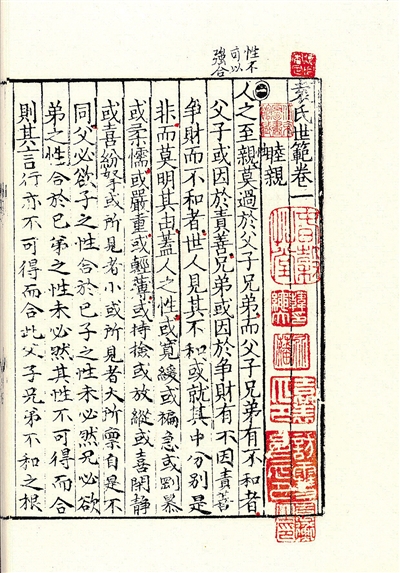 性不
可以
強合
袁氏世範卷一
睦親
人之至親莫過於父子兄弟而父子兄弟有不和者
父子或因於責善兄弟或因於爭財有不因責善
爭財而不和者世人見其不和或就其中分別是
非而莫明其由蓋人之性或寬緩或褊急或剛暴
或柔懦或嚴重或輕薄或持撿或放縱或喜閑靜
或喜紛拏或所見者小或所見者大所稟自是不
同父必欲子之性合於己子之性未必然兄必欲
弟之性合於己弟之性未必然其性不可得而合
則其言行亦不可得而合此父子兄弟不和之根